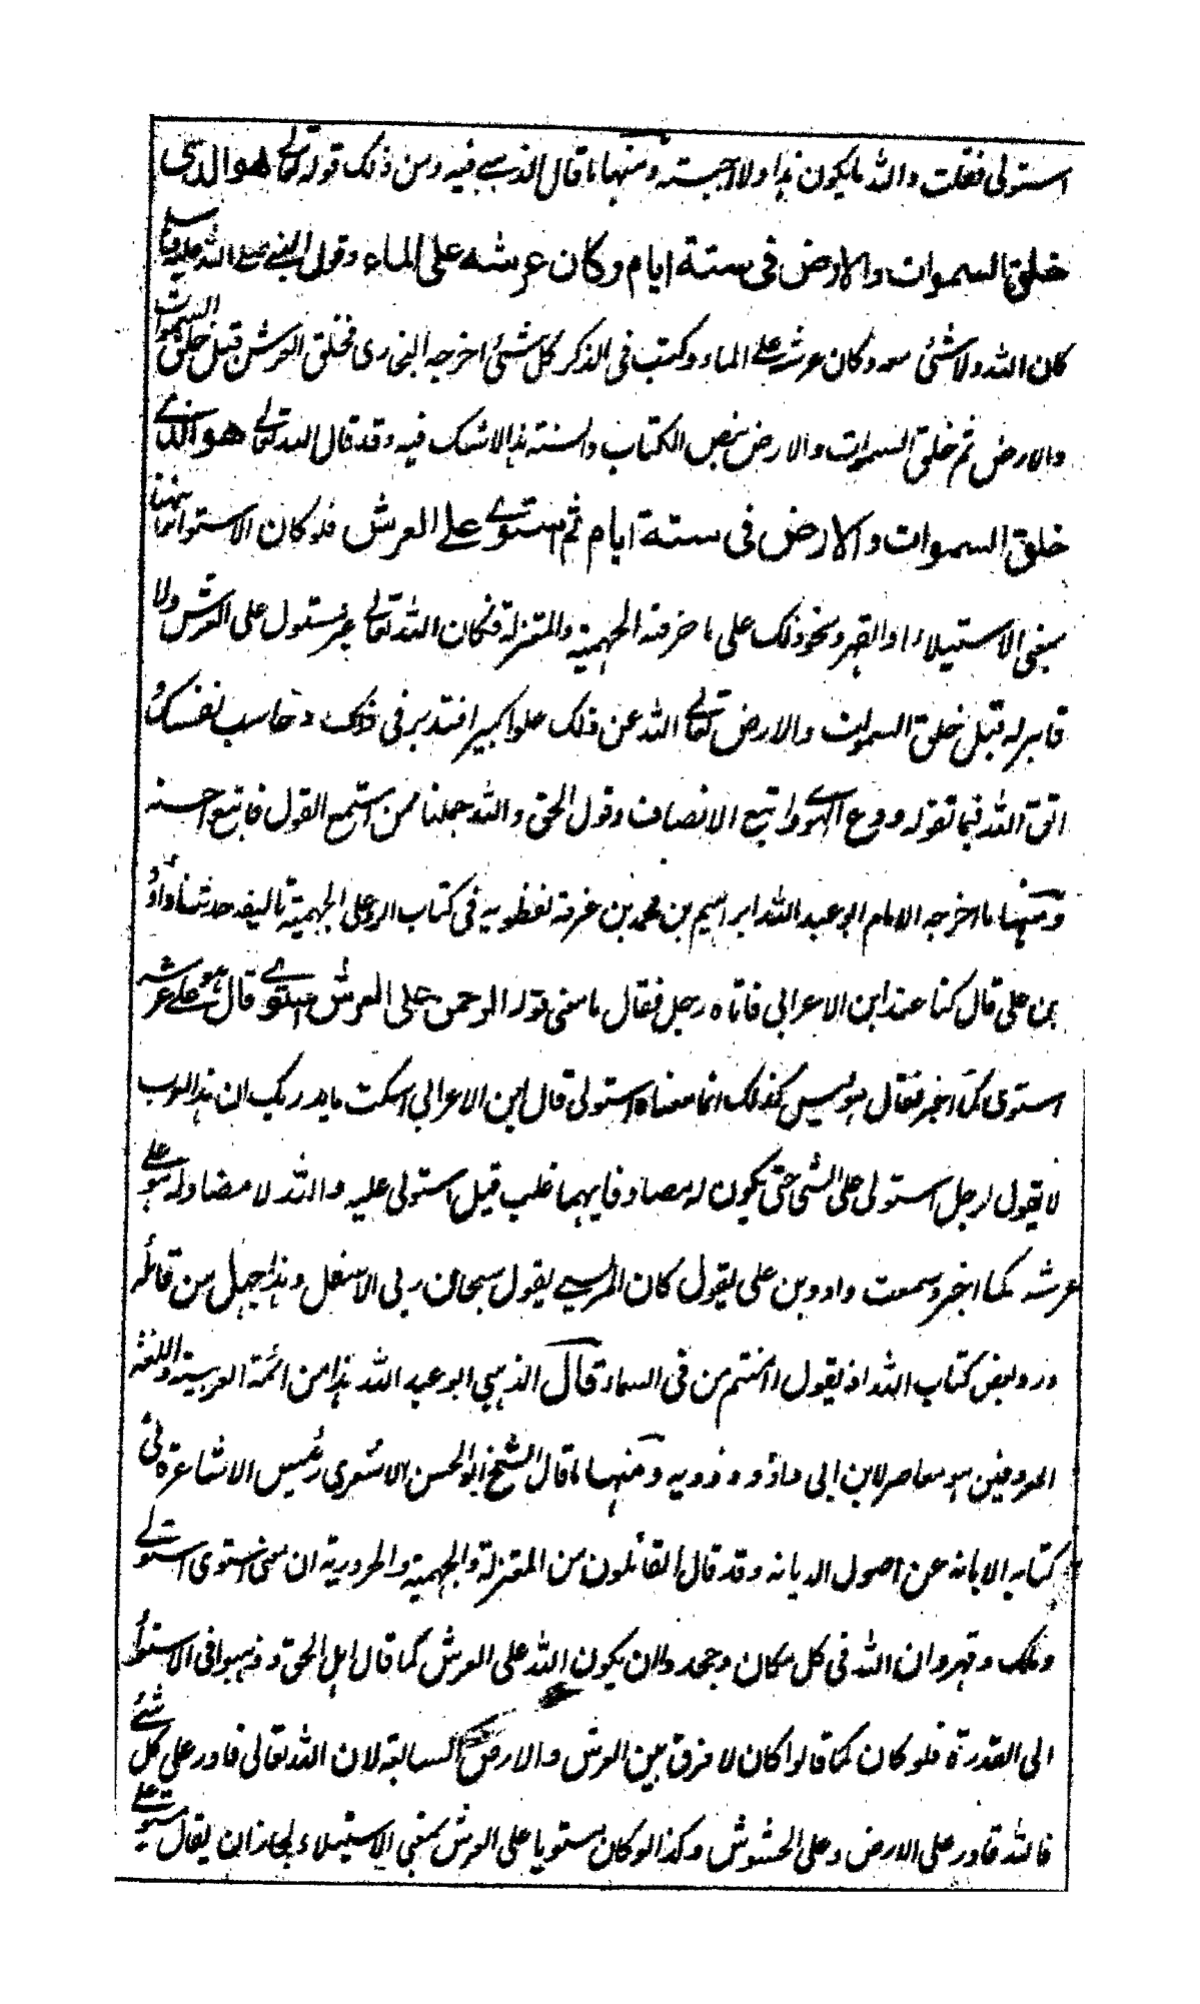 استولى فقلت والله ما يكون هذا ولا اجبته ومنها ما قال الذهبي فيه ومن ذلك قوله تعالى هو الذى
خلق السموات والارض فى ستة ايام وكان عرشه على الماء وقول النبي صلى الله عليه وسلم
كان الله ولا شئ معه وكان عرشه على الماء وكتب فى الذكر كل شئ اخرجه البخارى فخلق العرش قبل خلق السموات
والارض ثم خلق السموات والارض بنص الكتاب والسنة هذا لا شك فيه وقد قال الله تعالى هو الذى
خلق السموات والارض فى ستة ايام ثم استوى على العرش فلو كان الاستواء ههنا
بمعنى الاستيلاء او القهر ونحو ذلك على ما حرفته الجهمية والمعتزلة فكان الله تعالى غير مستول على العرش ولا
قاهر له قبل خلق السموات والارض تعالى الله عن ذلك علوا كبيرا فتدبر فى ذلك وحاسب نفسك و
اتق الله فيما تقوله ودع الهوى واتبع الانصاف وقول الحق والله جعلنا ممن استمع القول فاتبع احسنه
ومنها ما اخرجه الامام ابو عبد الله ابراهيم بن محمد بن عرفة نفطويه فى كتاب الرد على الجهمية تاليفه حدثنا داؤد
بن على قال كنا عند ابن الاعرابى فاتاه رجل فقال ما معنى قوله الرحمن على العرش استوى قال هو على عرشه
استوى كما اخبر فقال هو ليس كذلك انما معناه استولى قال ابن الاعرابى اسكت ما يدريك ان هذا العرب
لا يقول لرجل استولى على الشئ حتى يكون له مضاد فايهما غلب قيل استولى عليه والله لا مضاد له هو على
عرشه كما اخبر وسمعت داود بن على يقول كان المريسى يقول سبحان ربى الاسفل وهذا جهل من قائله
ورد لبعض كتاب الله اذ يقول أامنتم من فى السماء قال الذهبى ابو عبد الله هذا من ائمة العربية واللغة
المعروفين هو معاصر لابن ابى داؤد وذويه ومنها ما قال الشيخ ابو الحسن الاشعرى رئيس الاشاعرة فى
كتابه الابانه عن اصول الديانه وقد قال القائلون من المعتزلة والجهمية والحرورية ان معنى استوى استولى
وملك وقهر وان الله فى كل مكان وجحدوا ان يكون الله على العرش كما قال اهل الحق وذهبوا فى الاستواء
الى القدرة فلو كان كما قالوا كان لا فرق بين العرش والارض السابعة لان الله تعالى قادر على كل شئ
فالله قادر على الارض وعلى الحشوش وكذا لو كان مستويا على العرش بمعنى الاستيلاء لجاز ان يقال مستو على